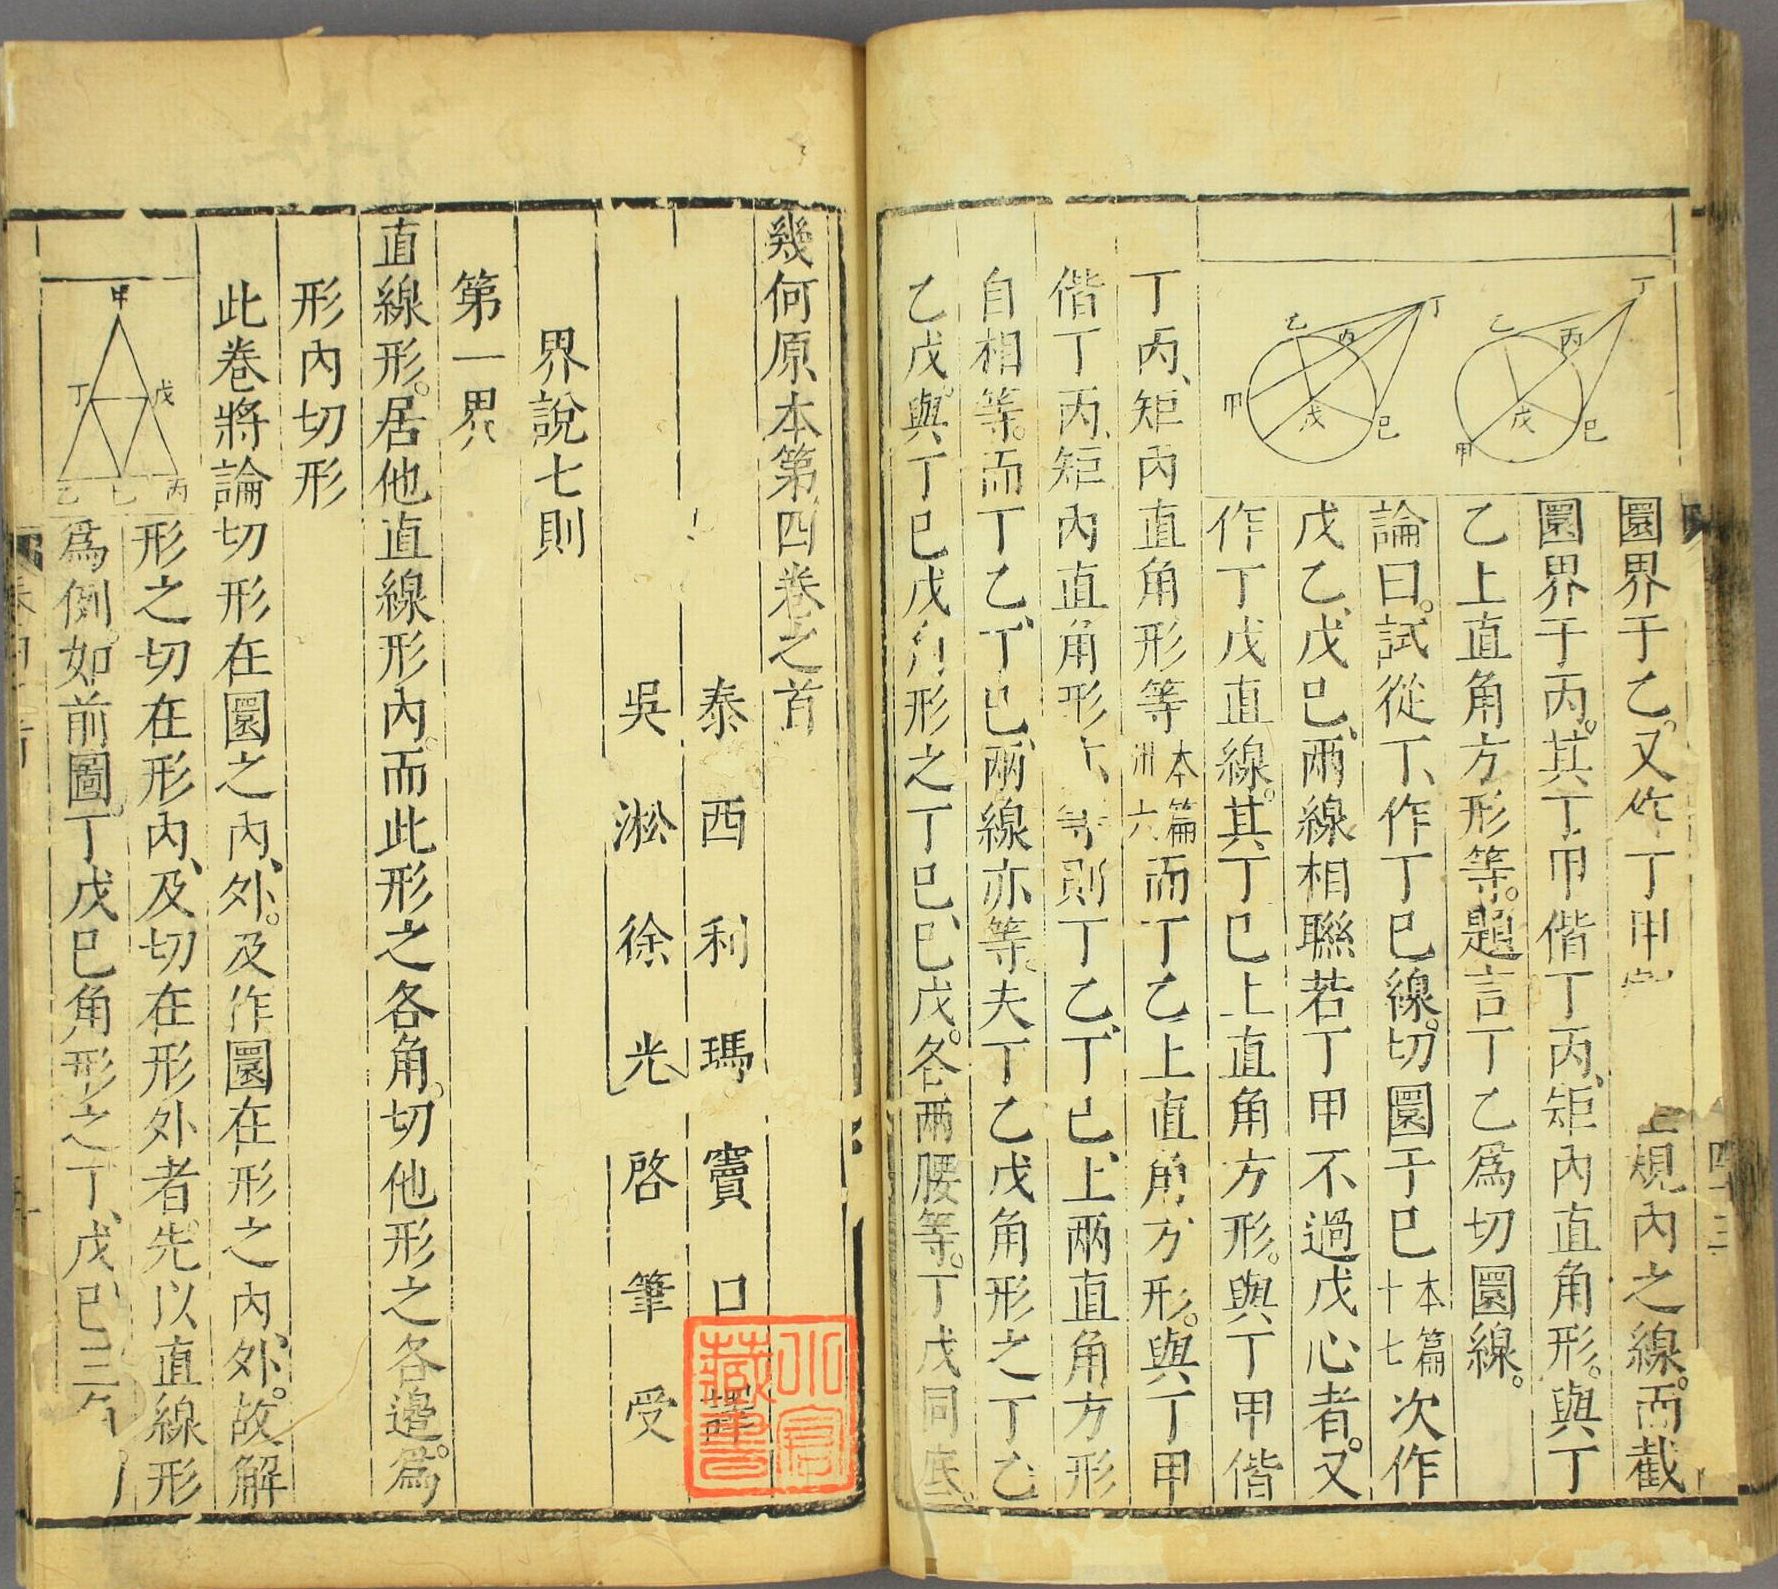 丁
乙
丙
戊
己
甲
丁
乙
丙
戊
己
甲
圜界于乙。又作丁甲
上規內之線。而截
圜界于丙。其丁甲偕丁丙、矩內直角形。與丁
乙上直角方形等。題言丁乙爲切圜線。
論曰。試從丁、作丁己線。切圜于己本篇十七次作
戊乙、戊己、兩線相聯若丁甲不過戊心者。又
作丁戊直線。其丁己上直角方形。與丁甲偕
丁丙、矩內直角形等本篇卅六而丁乙上直角方形。與丁甲
偕丁丙、矩內直角形等則丁乙、丁己、上兩直角方形
自相等。而丁乙、丁己、兩線亦等。夫丁乙戊角形之丁乙
乙戊。與丁己戊角形之丁己、己戊。各兩腰等。丁戊同底。
四十三
幾何原本第四卷之首
泰西利瑪竇口譯
吳淞徐光啓筆受
界說七則
第一界
直線形。居他直線形內。而此形之各角。切他形之各邊。爲
形內切形
此卷將論切形在圜之內、外。及作圜在形之內、外。故解
形之切在形內、及切在形外者。先以直線形
爲例。如前圖。丁戊己角形之丁、戊、己、三角
甲
丁
戊
乙
己
丙
藏書